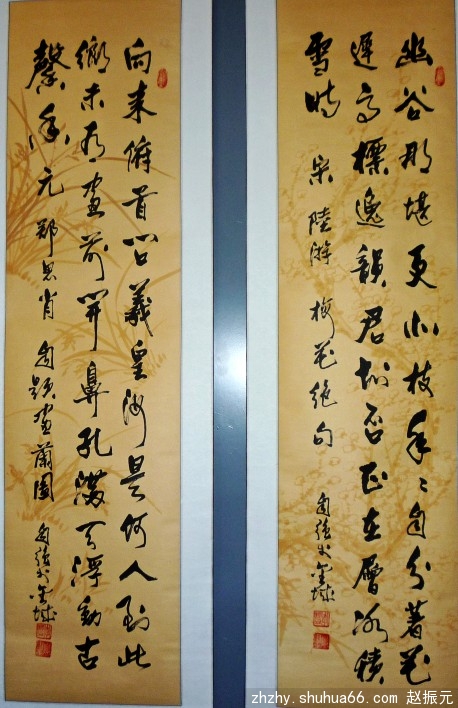 幽谷那堪更北枝年々自分著花
遲高標逸韻君知否正在層冰積
雪時 宋 陸游 梅花絕句 自強书
向来俯首问義皇汝是何人到此
鄉未有画前开鼻孔满天浮動古
馨香 元 鄭思肖 自題画蘭圖 自強书
zhzhy.shuhua66.com 赵振元